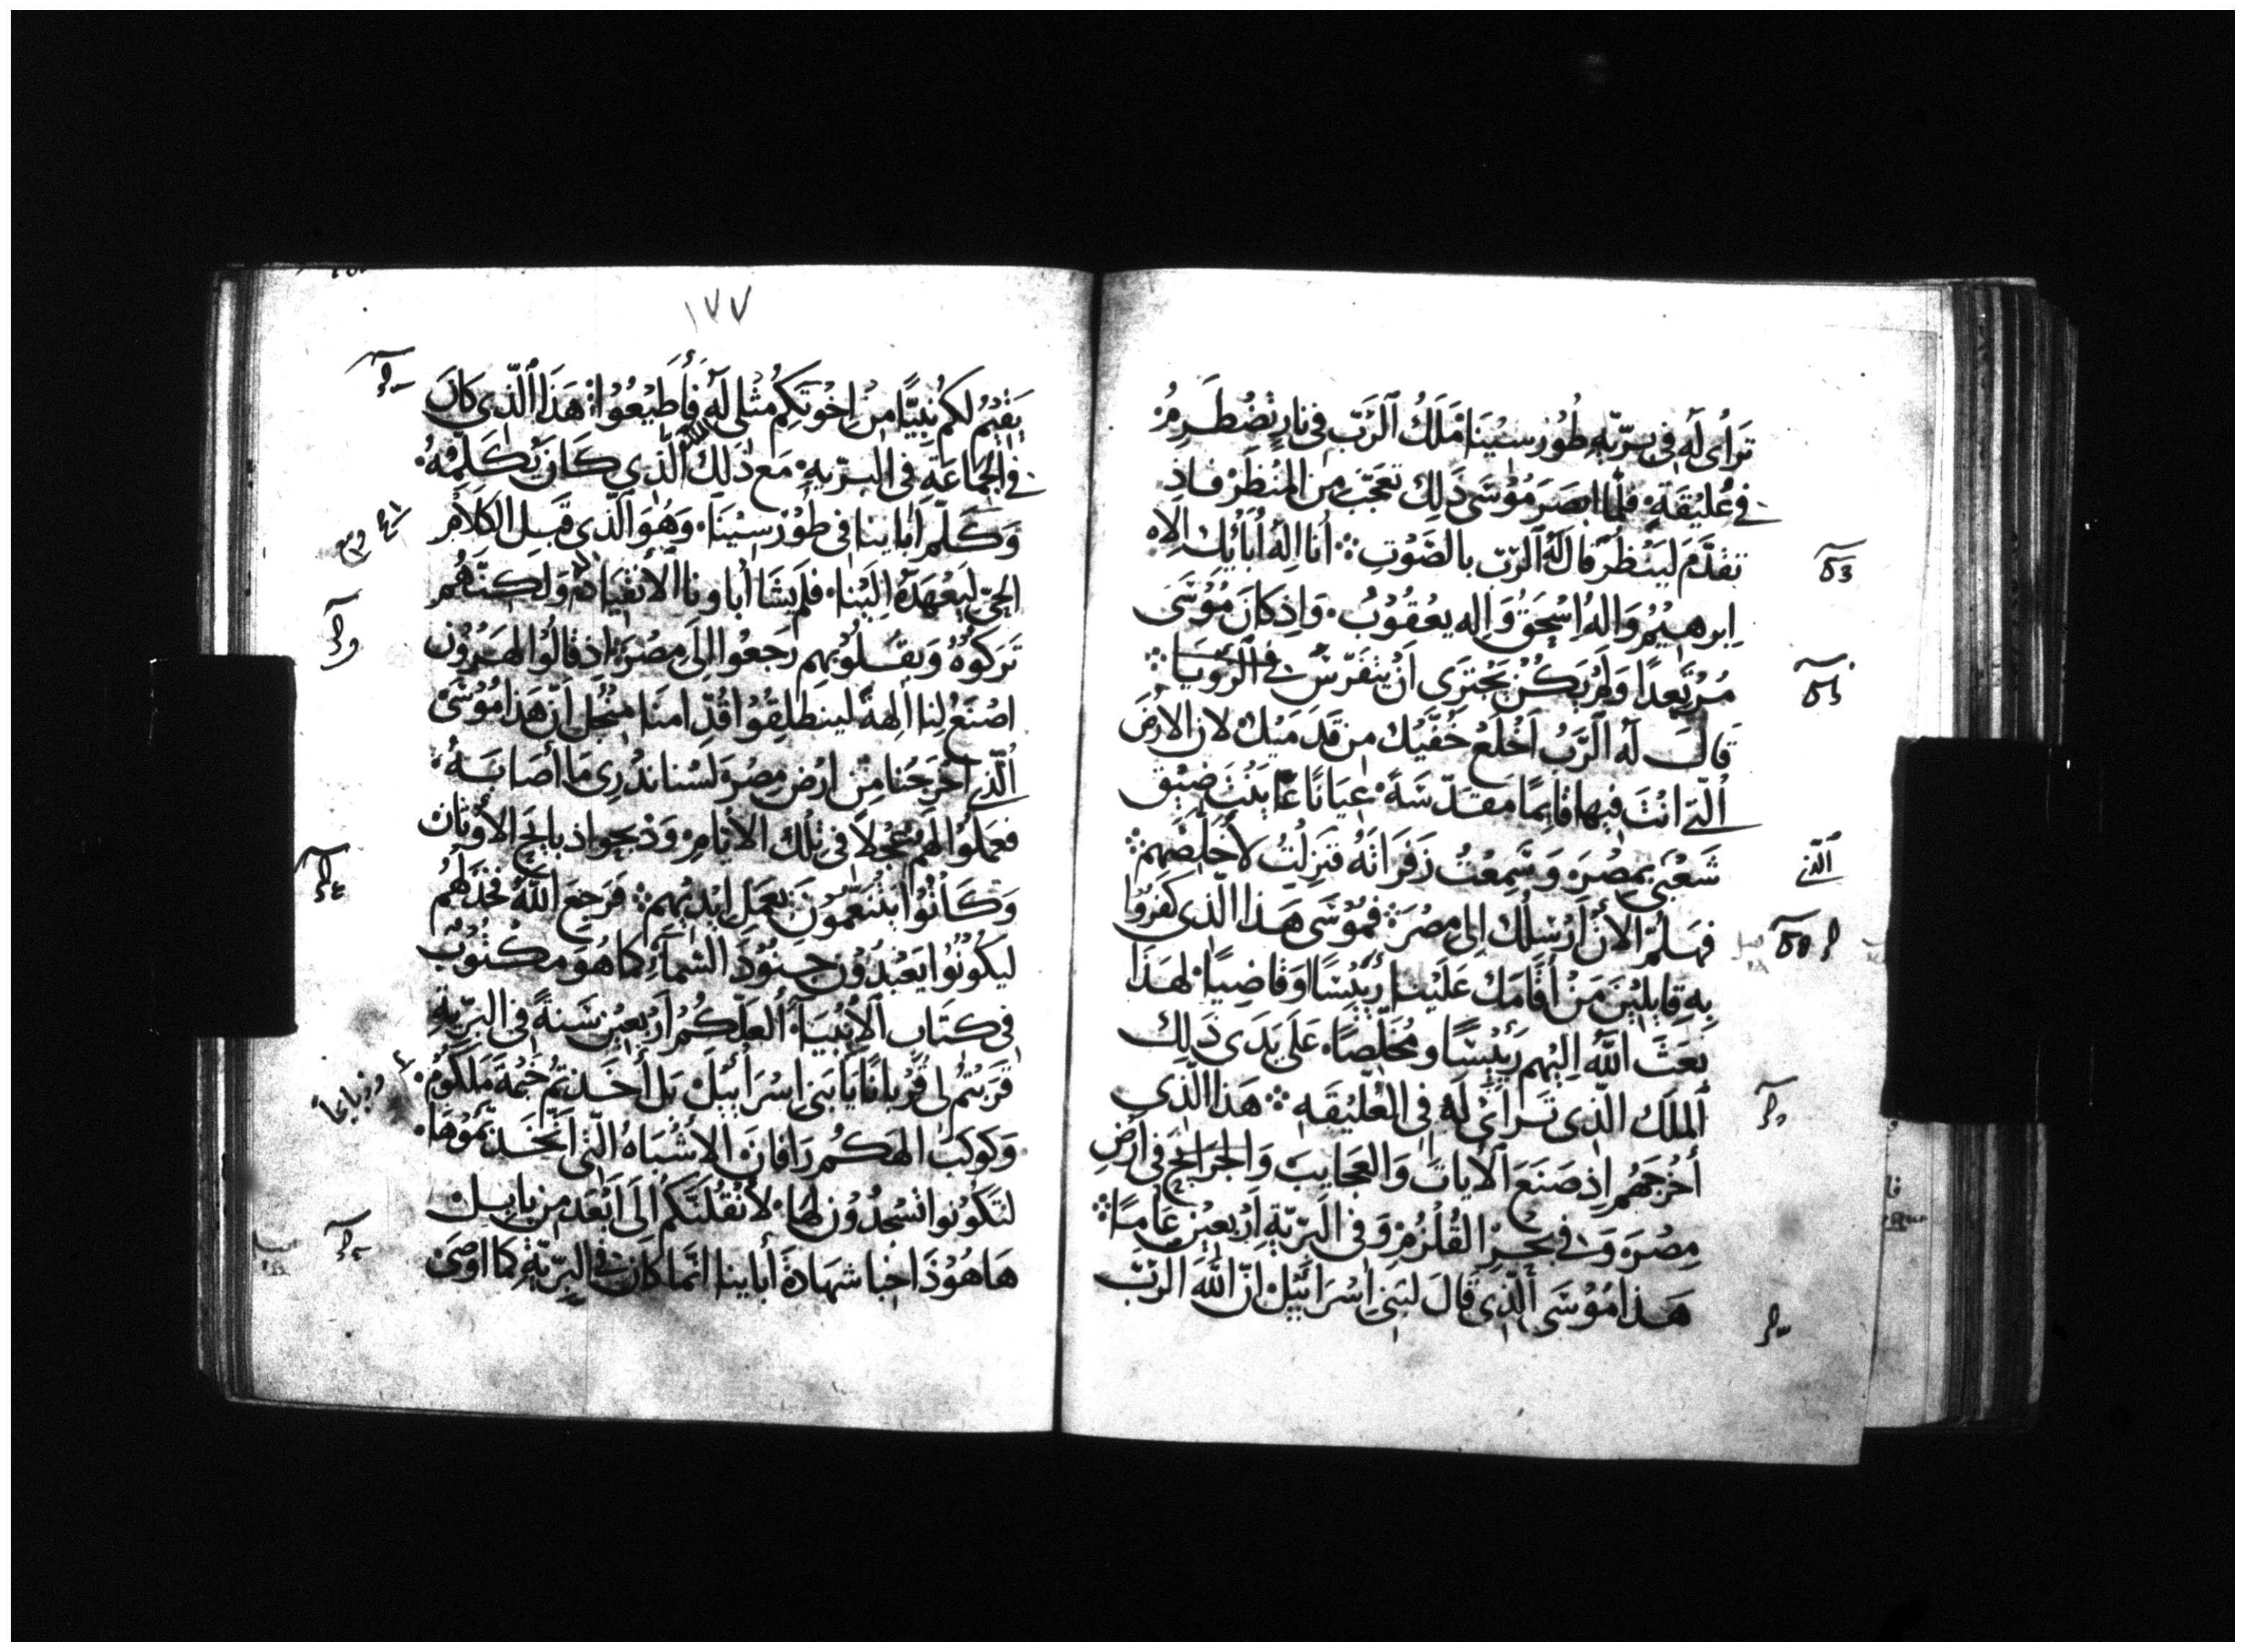 تَرَأى لَه فى بَرّيّه طُوُر سيْنَا مَلَكُ الرَبّ فى نارٍ تضْطَرِمُ
فى عُليْقَةٍ فلّما ابصَرَ مُوْسَى ذَلِك تعَجّبَ من المنْظَرْ فاذ
تقدَّمَ ليَنْظرَ قال لَهُ الرّبّ بالصَوْتِ أنا الهُ أبَائِك الاه
ابرهيْمُ وَالهُ اسْحقُ وَاله يعْقُوْبُ وَاذ كانَ مُوْسَى
مُرْتعِدًا وَلمْ يكُنْ يجْترى أنْ يتفرّسَ فى الرُويَا
قالَ لَه الرَبُ اخْلَعْ خُفّيْك من قدَميْك لان الارْضَ
الّتى انْتَ فيْها قايمًا مقدّسَةً عيَانًا عَاينْتُ ضيْق
شَعْبَى بمصْرَ وَسَمِعْتُ زفَرَاتَهُ فنزلْتُ لأخَلّصَهم
فهَلمّ الأنْ أرْسلُك الى مصْرَ فمُوْسَى هَذا الّذى كفرُوا
بِهِ قايليْنَ مَنْ أقَامَك عَليْنا رئيْسًا وَقاضِيًا لهَذا
بَعَثَ اللّهُ اليْهم رَئيْسًا ومُخلّصًا عَلَى يَدَى ذَلِك
المَلَك الّذى تَرَاأىْ لَهُ فى العُليْقَه هَذا الّذى
أخْرجَهُم اذ صَنعَ الأيات وَالعجَايبَ وَالجرَايحَ فى ارْضِ
مِصْرَ وَفى بحْرِ القُلْزُم وَفى البَرّيّةِ أرْبعيْن عَامًا
هَذا مُوْسَى الّذى قالَ لبَنى اسْرَائيْل انّ اللّهَ الرّبّ
الّذى
١٧٧
يقيْمُ لكمْ نبيًّا منْ اخْوتكمُ مثْلى لَهُ فأطيْعُوْا هَذَا الّذى كانَ
فى الجمَاعَةِ فى البرّيةِ مَع ذلك الّذى كَانَ يُكَلّمهُ
وَكَلّمَ اباينا فى طوُرْ سيْنَا وَهُوَ الّذى قَبلَ الكلامْ
الحىّ ليَعْهَدهُ اليْنا فلَم يشَا أباونا الانقيَاد لهُ وَلكنّهُم
تَركوْهُ وَبقُلوْبهم رَجعُوا الَى مصْرَ اذ قالُوْا لهَرُوْن
اصْنَعْ لنا الهةً لينطَلِقوُا قُدّامَنا منْ اجل أنّ هَذا مُوْسَى
الّذى أخْرَجنا منْ ارْض مِصْرَ لسْنا ندْرِى مَا أصَابَهُ
فعملُوْا لَهم عجْلاً فى تلْك الأيَام وَذبحوا ذبايح الأوْثان
وَكَانُوْا يتنعّمُوْنَ بعمَلِ ايْديْهم فرَجَعَ اللّهُ فخذَلهُمْ
ليَكُوْنُوْا يَعْبُدُوْن جنوْدَ السّمَآءِ كما هُوَ مكْتُوْبٌ
فى كتاب الأنْبيَآء العَلّكمُ أرْبعيْن سَنةً فى البرّيةِ
قرّبتُم لى قُرْبانًا يَا بَنى اسْرَائيْلَ بَل أخَذتمُ خيْمةَ مَلكُوْم
وَكوْكبَ الهَكُم رَافانَ الاشْبَاهُ الّتى اتّخذتمُوْهَا
لتَكُوْنوا تسْجُدُوْن لَها لأنْقُلَنّكُم الَى أبْعَد مِن بابل
هَا هُوْذا خبا شهَادَةِ أباينا انّما كانَ فى البرّيّةِ كما اوْصَى